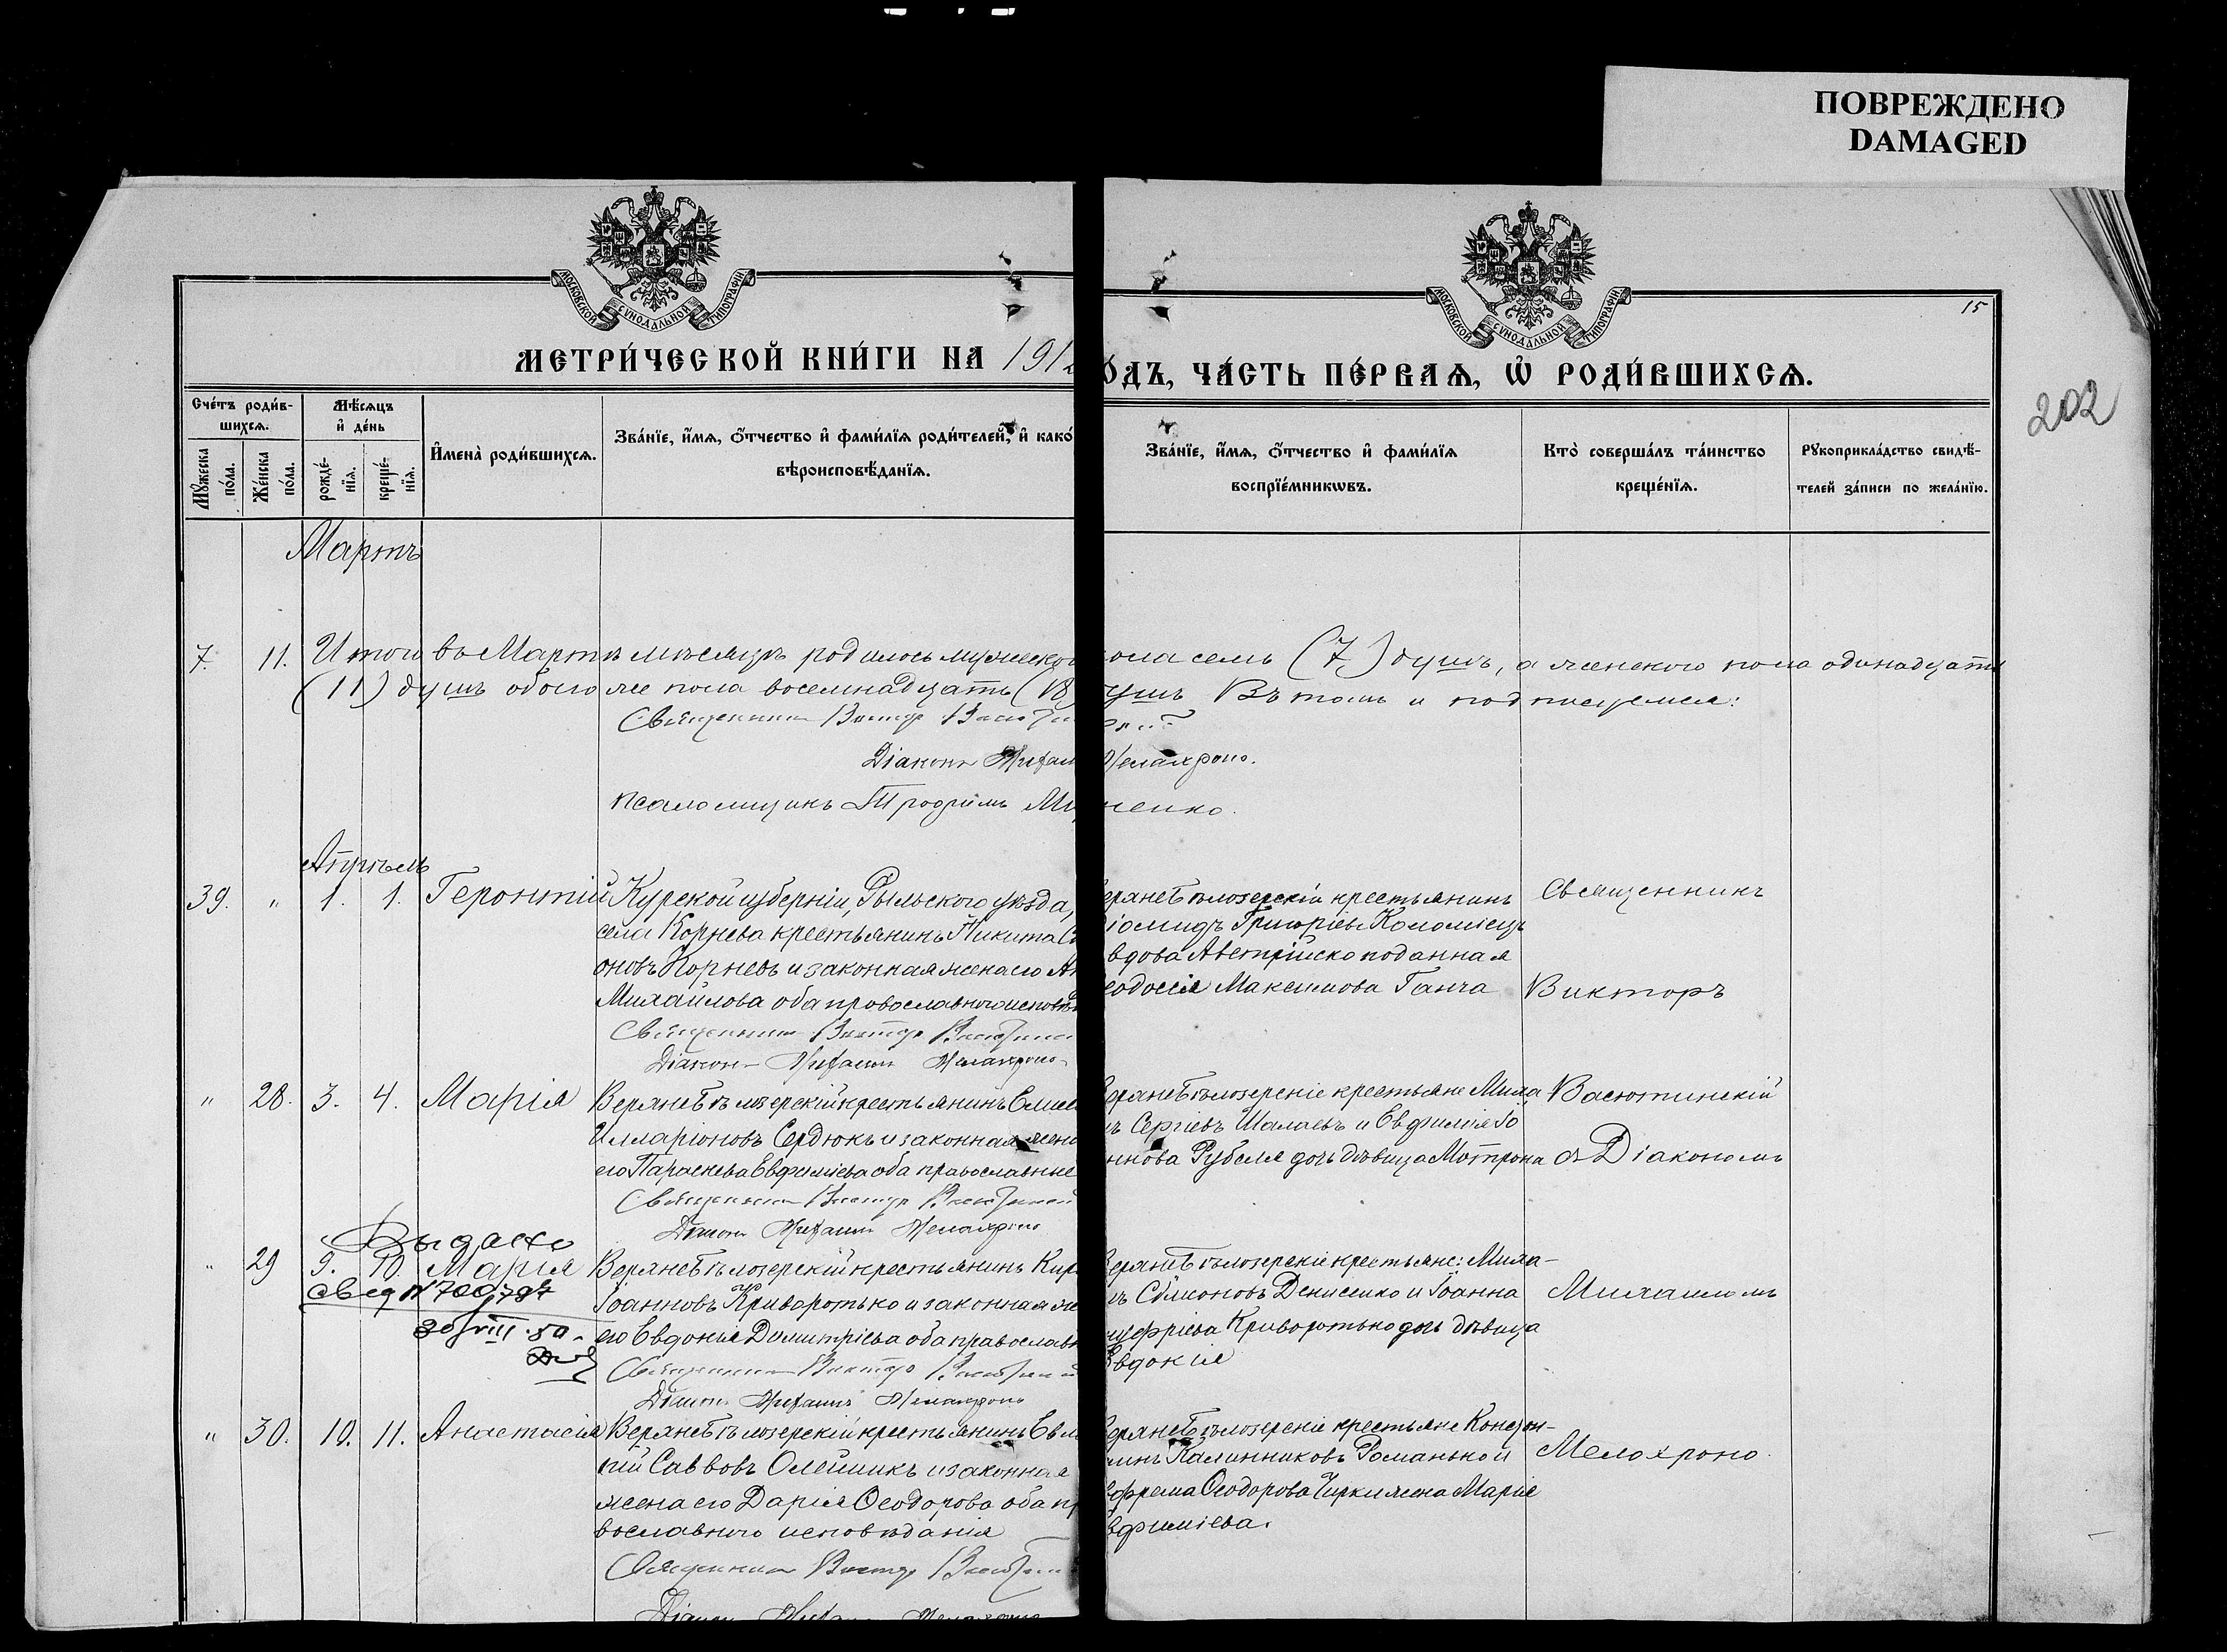 ПОВРЕЖДЕНО
DAMAGED
МОСКОВСКОЙ СѴНОДАЛЬНОЙ ТИПОГРАФІИ
МОСКОВСКОЙ СѴНОДАЛЬНОЙ ТИПОГРАФІИ
15
202
МЕТРИ́ЧЕСКОЙ КНИ́ГИ НА 1912
ОДЪ, ЧА́СТЬ ПЕ́РВАѦ, Ѡ҆ РОДИ́ВШИХСѦ.
Сче́тъ роди́в-
шихсѧ.
Мꙋ́жеска по́ла.
Же́нска по́ла.
Мѣ́сѧцъ
и҆ де́нь
рожде́-
нїѧ.
креще́-
нїѧ.
И҆мена̀ роди́вшихсѧ.
Зва́нїе, и҆́мѧ, ѻ҆́тчество и҆ фами́лїѧ роди́телей, и҆ како́
вѣроисповѣ́данїѧ.
Зва́нїе, и҆́мѧ, ѻ҆́тчество и҆ фами́лїѧ
воспрїе́мникѡвъ.
Кто̀ соверша́лъ та́инство
креще́нїѧ.
Рꙋкоприкла́дство свидѣ́-
телей за́писи по жела́нїю.
Мартъ
7. 11. Итого въ Мартѣ мѣсяцѣ родилось мужеско
ола семь (7) душъ, а женского пола одинадцать
(11) душъ обоего же пола восемнадцать (18)
ушъ Въ томъ и подписуемся:
Священникъ Викторъ
Діаконъ Михаил
Мелахроно.
Псаломщикъ Трофимъ Ми
ненко.
Апрѣль
39. " 1. 1. Геронтій Курской губерніи, Рыльского уѣзда,
села Корнева крестьянинъ Никита Си
оновъ Корневъ и законная жена его Ан
Михайлова оба провославного исповѣ
Священникъ Викторъ
Діаконъ Михаилъ Мелахроно
ерхнебѣлозерскій крестьянинъ
іомидъ Григоріевъ Коломіецъ
вдова Австрійско поданная
еодосія Максимова Ганча
Священникъ
Викторъ
" 28. 3. 4. Марія Верхнебѣлозерскій крестьянинъ Елисе
Илларіоновъ Сердюкъ и законная жена
его Параскева Евфиміева оба православные
Священникъ Викторъ
Діаконъ Михаилъ Мелахроно
ерхнебѣлозерскіе крестьяне Миха
лъ Сергіевъ Шалаевъ и Евфимія Іо
ннова Рубеля дочь дѣвица Мотрона
Васютинскій
съ Діакономъ
Выдано
" 29 9. 10. Марія Верхнебѣлозерскій крестьянинъ Кир
свед №
Іоанновъ Криворотько и законная же
его Евдокія Димитріева оба православн
Священникъ Викторъ
Діаконъ Михаилъ Мелахроно
ерхнебѣлозерскіе крестьяне: Миха-
лъ Сѵмоновъ Денисенко и Іоанна
нуфріева Криворотько дочь дѣвица
Евдокія
Михаиломъ
" 30. 10. 11. Анастасія Верхнебѣлозерскій крестьянинъ Евл
пій Саввовъ Олейникъ и законная
жена его Дарія Ѳеодорова оба пр
вославного исповѣданія
Священникъ Викторъ
Діаконъ
ерхнебѣлозерскіе крестьяне Консзон-
тинъ Калинниковъ Романько и
фрема Ѳеодорова Чирки жена Марія
вфиміева.
Мелохроно.